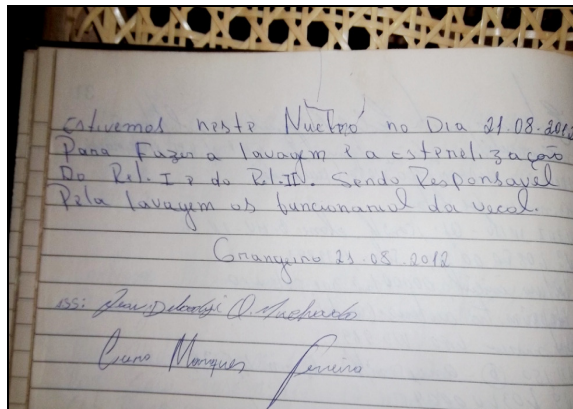 Estivemos neste Nucleo no Dia 21.08.2012
Para Fazer a lavagem e a esterelização
Do Rel. I e do Rel. II. Sendo Responsavel
Pela lavagem os funcionarios da
21.08.2012
ass: Machado
Marques Ferreira